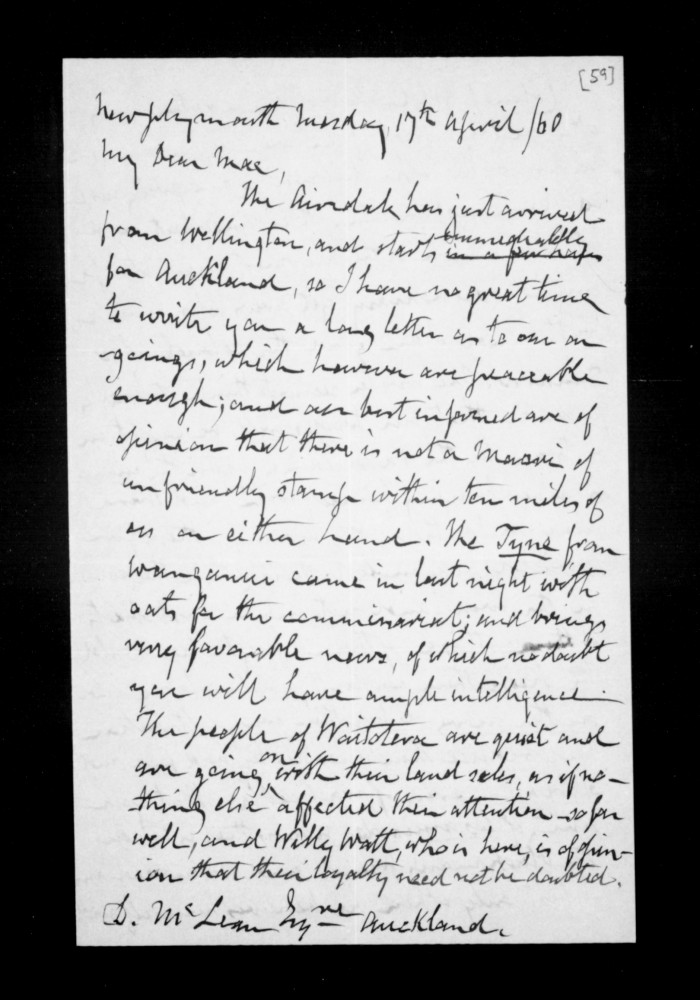 [59]
New Plymouth Tuesday, 17th April /60
My Dear Mac,
The Airedale has just arrived
from Wellington, and starts immediately
in a few
for Auckland, so I have no great time
to write you a long letter as to our on
goings, which however are peaceable
enough; and our best informed are of
opinion that there is not a Maori of
unfriendly stamp within ten miles of
us on either hand. The Tyne from
Wanganui came in last night with
oats for the commissariat; and brings
very favorable news, of which no doubt
you will have ample intelligence
The people of Waitotera are quiet and
are going on with their land sales, as if no-
thing else affected their attention - so far
well, and Willy Watt, who is here, is of opin-
ion that their loyalty need not be doubted.
D. McLean Esqre Auckland.